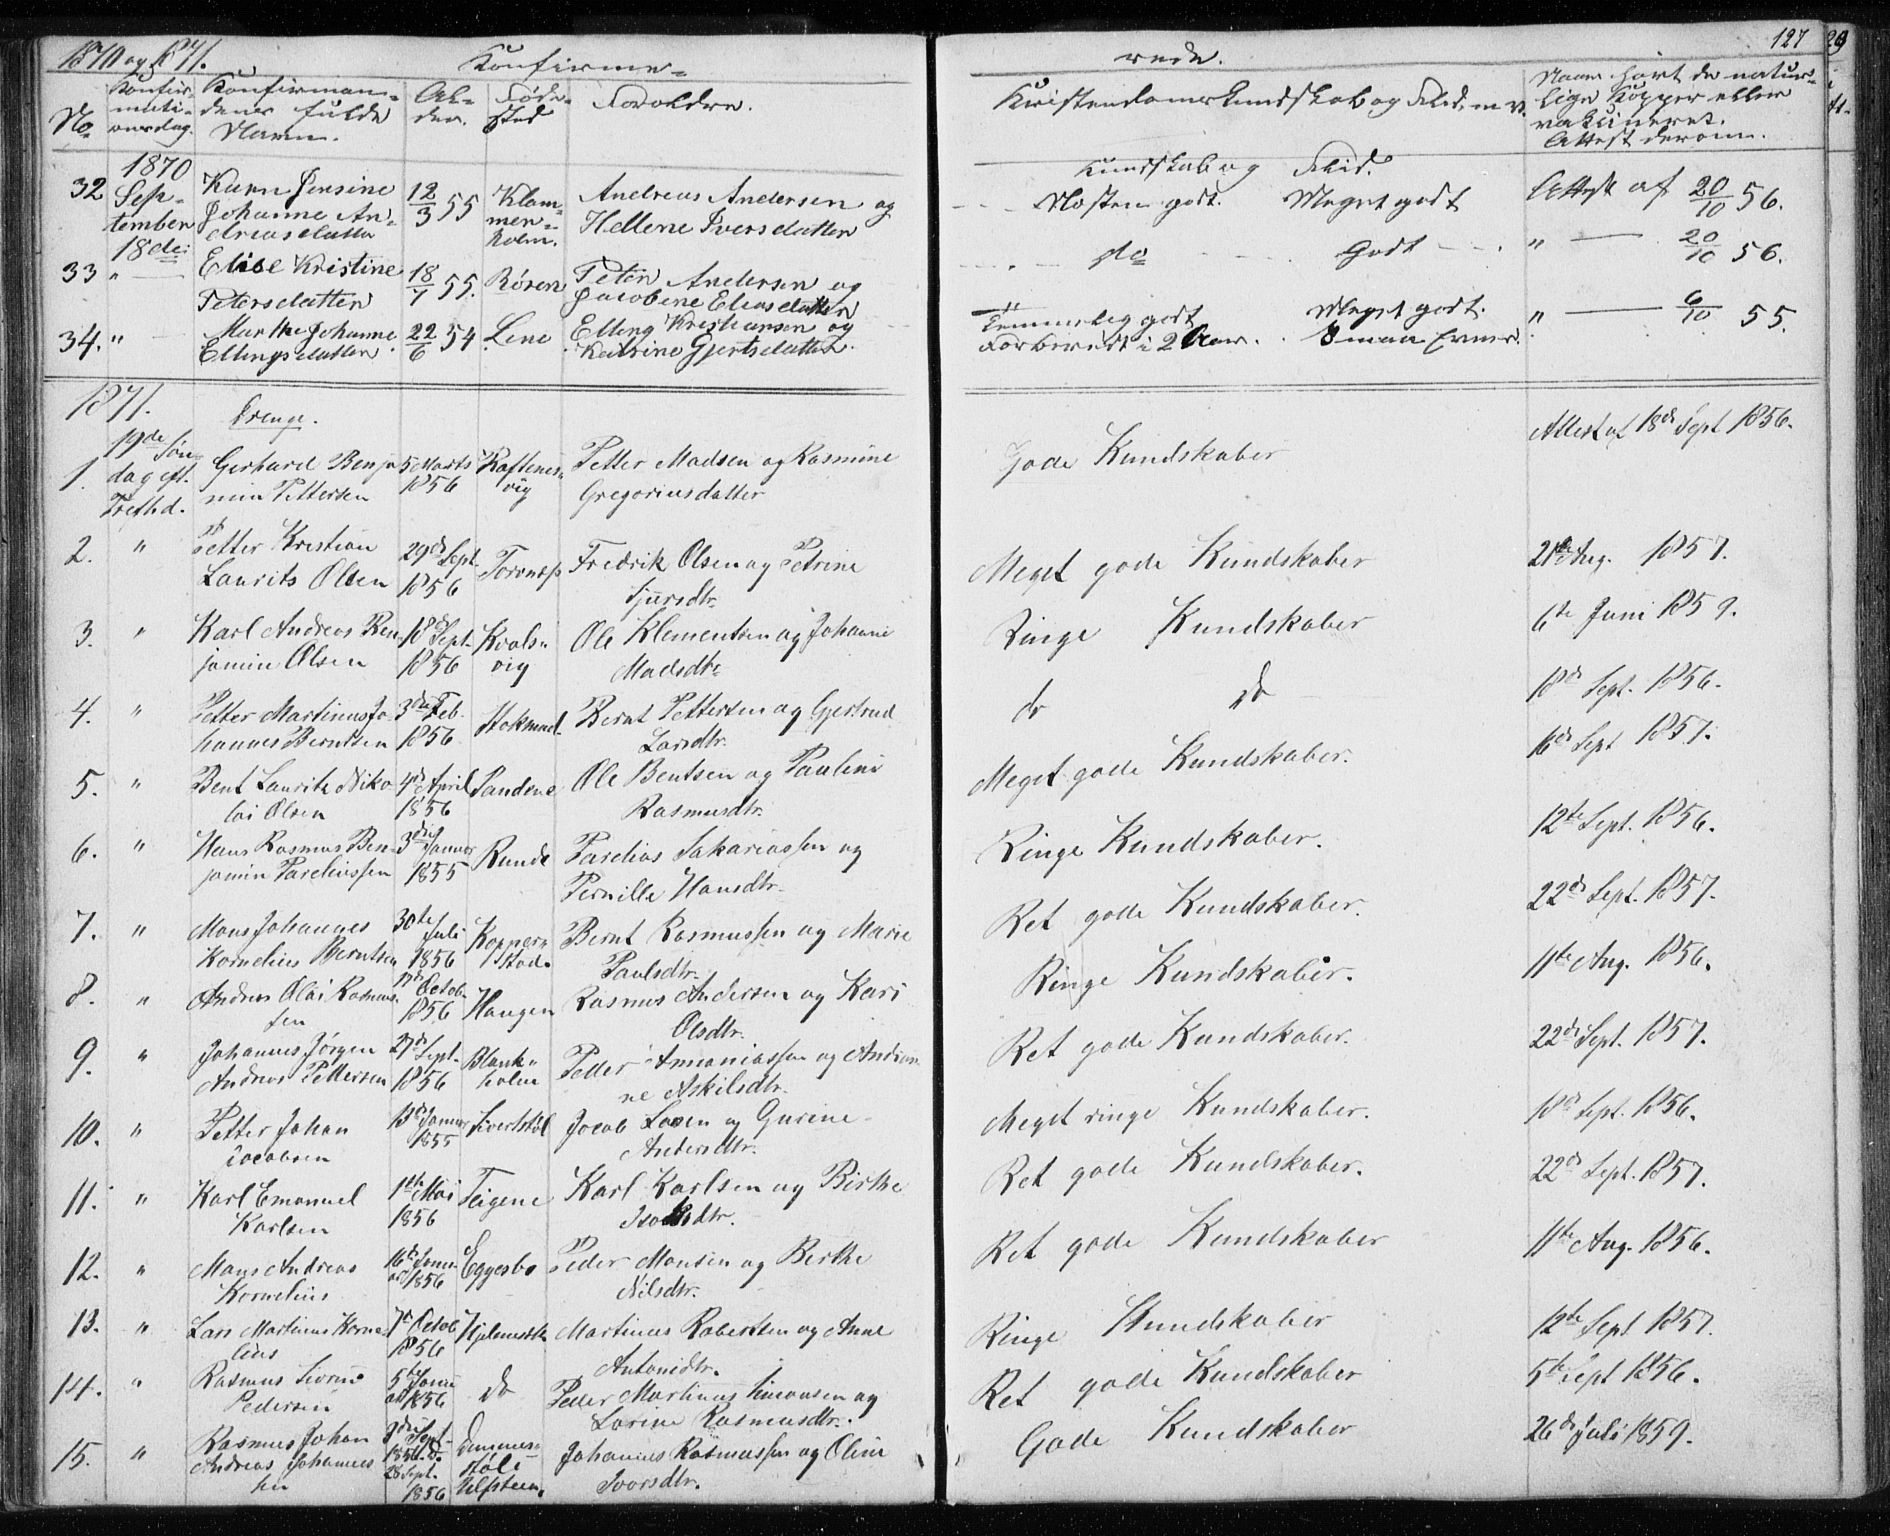 1870 og 1871. Konfirme= rede. 127
No Konfir- mati- onsdag. Konfirman- dens fulde Navn. Al- der. Føde- sted Forældre. Kristendomskundskab og Flid m. v. Naar havt de natur- lige Kopper eller vakcineret. Attest derom.
1870 Kundskab og Flid.
32 Sep- tember 18de: Karn Jensine Johanne An- dreasdatter 12/3 55 Klom- mer- holm. Andreas Andersen og Hellene Iversdatter Næsten godt. Meget godt Attest af 20/10 56.
33 " Elise Kristine Petersdatter 18/7 55. Røren Peter Andersen og Jacobine Eliasdatter do Godt " 20/10 56.
34. " Marthe Johanne Ellingsdatter. 22/6 54 Lene Elling Kristiansen og Katrine Gjertsdatter. Temmelig godt Forberedt i 2 Aar. Meget godt. " 6/10 55.
1871.
Drenge.
1. 19de Søn- dag eft. Trefhd. Gerhard Benja min Pettersen 5 Marts 1856 Raftenes- vig Petter Madsen og Rasmine Gregoriusdatter Gode Kundskaber Attest af 18de Sept 1856.
2. " Petter Kristian Laurits Olsen 29de Sept. 1856 Torvnes Fredrik Olsen og Petrine Sjursdtr. Meget gode Kundskaber 21de Aug. 1857.
3. " Karl Andreas Ben jamin Olsen 18de Sept. 1856 Kvals- vig Ole Klementsen og Johanne Madsdtr. Ringe Kundskaber 6te Juni 1859.
4. " Petter Martinus Jo- hannes Berntsen 3die Feb. 1856 Stoksund Bernt Pettersen og Gjertrud Larsdtr. do do 18de Sept. 1856.
5. " Bent Laurits Niko- lai Olsen 4de April 1856 Sandene Ole Bentsen og Pauline Rasmusdtr. Meget gode Kundskaber. 16de Sept 1857.
6. " Hans Rasmus Ben- jamin Pareliussen 3die Januar 1855 Runde Parelius Sakariassen og Pernille Hansdtr. Ringe Kundskaber. 12te Sept. 1856.
7. " Mons Johannes Kornelius Berntsen 30te Juli 1856 Kopper- stad. Bernt Rasmussen og Marie Paulsdtr. Ret gode Kundskaber. 22de Sept. 1857.
8. " Andreas Olai Rasmus- sen Octob. 1856 Haugen Rasmus Andersen og Kari Olsdtr. Ringe Kundskaber. 11te Aug. 1856.
9. " Johannes Jørgen Andreas Pettersen 27de Sept. 1856 Blank- holm Petter Annaniassen og Andrian ne Askilsdtr. Ret gode Kundskaber. 22de Sept. 1857.
10. " Petter Johan Jacobsen 13de Januar 1855 Sivertstøl Jacob Larsen og Gurine Andersdtr. Meget ringe Kundskaber. 18de Sept. 1856.
11. " Karl Emanuel Karlsen 1ste Mai 1856 Teigene Karl Karlsen og Birthe Isaksdtr. Ret gode Kundskaber. 22de Sept. 1857.
12. " Mons Andreas Kornelius 16de Janu- ar 1856 Eggesbø Peder Monsen og Birthe Nilsdtr. Ret gode Kundskaber 11te Aug. 1856.
13. " Lars Martinus Korne- lius 7de Octob 1856 Martinus Robertsen og Anne Antonidtr. Ringe Kundskaber 12te Sept 1857.
14. " Rasmus Severine Pedersen 5te Janu ar 1856 do Peder Martinus Simonsen og Lorine Rasmusdtr. Ret gode Kundskaber 5te Sept 1856.
15. " Rasmus Johan Andreas Johannes sen 3die Sept. 1856. D. 28 Sept. 1856 støle Ulfsteen. Johannes Rasmussen og Oline Ivorsdtr. Gode Kundskaber 26de Juli 1859.